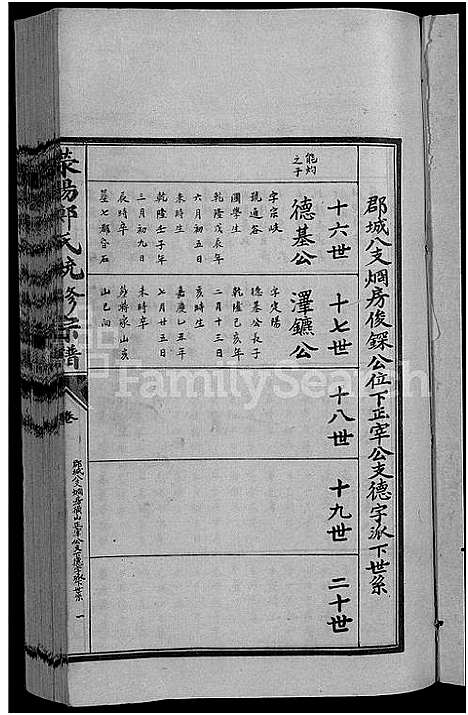 郡城八支烟房俊錁公位下正宰公支德字派下世系
十六世
能灼之子
德基公
字宗岐
號通谷
國學生
乾隆戊辰年
六月初五日
未時生
乾隆壬子年
二月初九日
辰時卒
十七世
澤鑣公
字定陽
德基公長子
乾隆己亥年
二月十三日
亥時生
嘉慶乙丑年
七月廿五日
未時卒
山巳向
十八世
十九世
二十世
滎陽鄭氏統修宗譜
卷
郡城八支烟房
正宰公支德字派下世系 一
FamilySearch